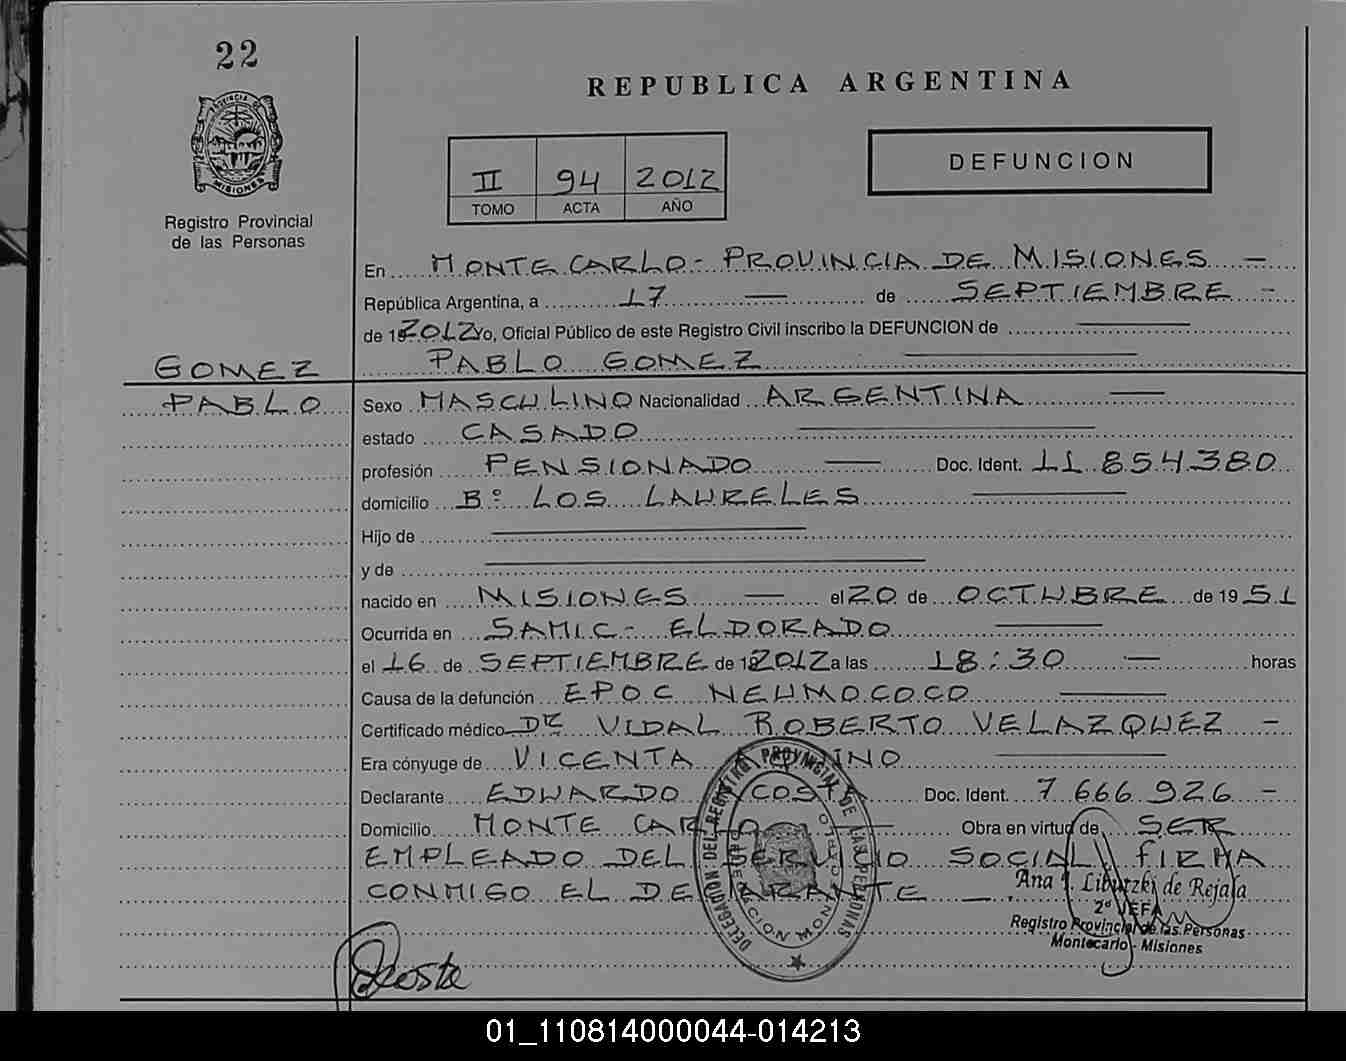 22
REPUBLICA ARGENTINA
PROVINCIA DE
MISIONES
II 94 2012
TOMO ACTA AÑO
DEFUNCION
Registro Provincial
de las Personas
En MONTE CARLO - PROVINCIA DE MISIONES —
República Argentina, a 17 — de SEPTIEMBRE -
de 192012 Yo, Oficial Público de este Registro Civil inscribo la DEFUNCION de
GOMEZ
PABLO GOMEZ
PABLO
Sexo MASCULINO Nacionalidad ARGENTINA
estado CASADO
profesión PENSIONADO Doc. Ident. 11.854.380
domicilio Bº LOS LAURELES
Hijo de
y de
nacido en MISIONES — el 20 de OCTUBRE de 1951
Ocurrida en SAMIC - ELDORADO
el 16 de SEPTIEMBRE de 192012 a las 18:30 — horas
Causa de la defunción EPOC NEUMOCOCO
Certificado médico DR VIDAL ROBERTO VELAZQUEZ -
Era cónyuge de VICENTA
Declarante EDUARDO ACOSTA Doc. Ident. 7 666 926 -
Domicilio MONTE CARLO Obra en virtud de SER
EMPLEADO DEL SERVICIO SOCIAL FIRMA
CONMIGO EL DECLARANTE — .
DELEGACION DEL REGISTRO PROVINCIAL DE LAS PERSONAS
Ana I. Libutzki de Rejala
2º JEFA
Registro Provincial de las Personas
Montecarlo - Misiones
Acosta
01_110814000044-014213